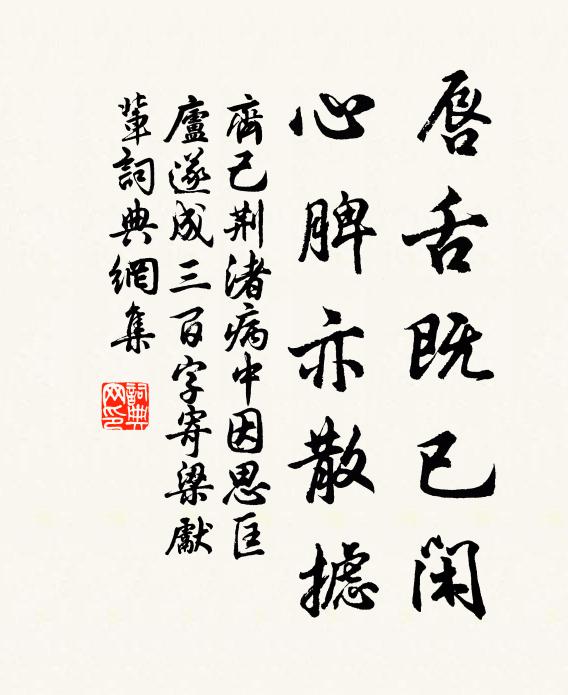 唇舌既已闲
心脾亦散摅
齊己荆渚病中因思匡
廬遂成三百字寄梁獻
葷詞典網集
詞典网印